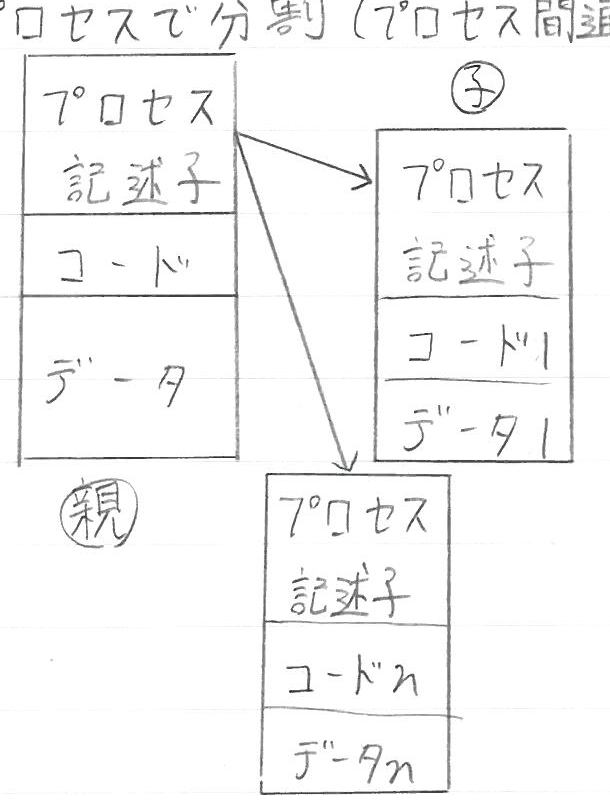 プロセスで分割(プロセス間
プロセス
記述子
コード
データ
親
子
プロセス
記述子
コード1
データ1
プロセス
記述子
コードn
データn